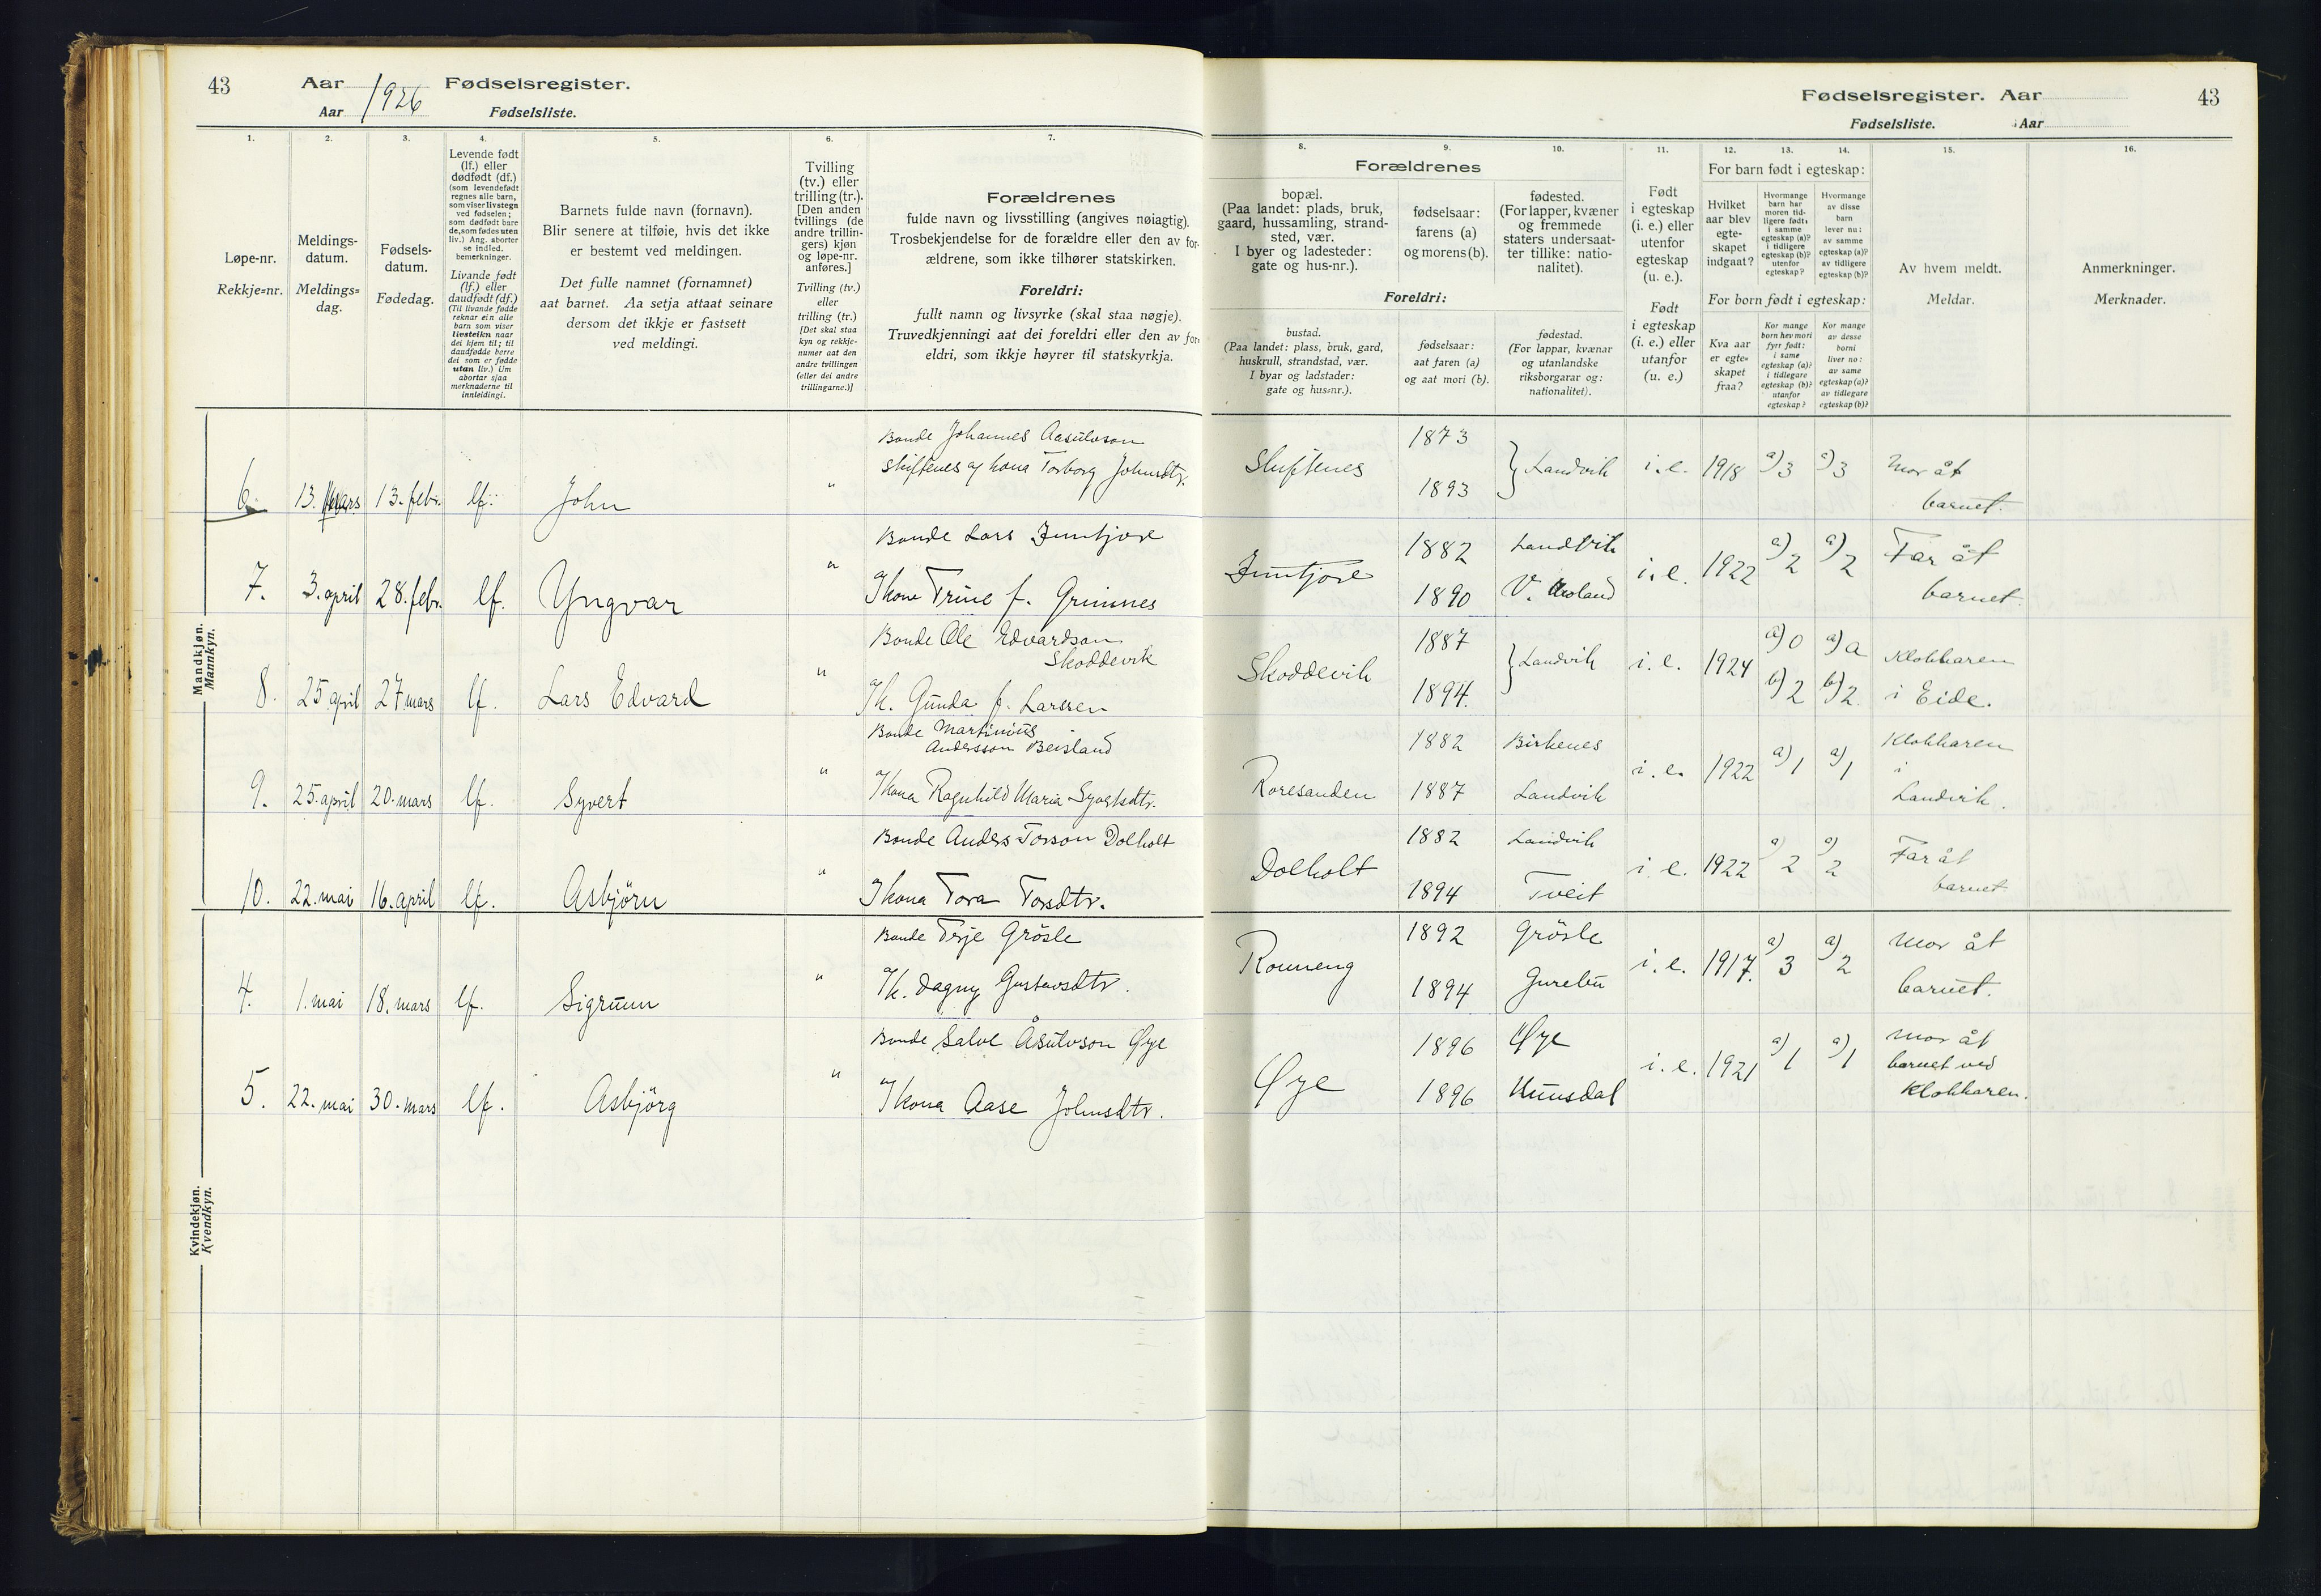 43
Aar 1926 Fødselsregister.
Aar Fødselsliste.
1. 2. 3. 4. 5. 6. 7.
Løpe-nr.
Rekkje=nr.
Meldings-
datum.
Meldings=
dag.
Fødsels-
datum.
Fødedag.
Levende født
(lf.) eller
dødfødt (df.)
(som levendefødt
regnes alle barn,
som viser livstegn
ved fødselen;
som dødfødt bare
de, som fødes uten
liv.) Ang. aborter
se indled.
bemerkninger.
Livande født
(lf.) eller
daudfødt (df.)
(Til livande fødde
reknar ein alle
barn som viser
livsteikn naar
dei kjem til; til
daudfødde berre
dei som er fødde
utan liv.) Um
abortar sjaa
merknaderne til
innleidingi.
Barnets fulde navn (fornavn).
Blir senere at tilføie, hvis det ikke
er bestemt ved meldingen.
Det fulle namnet (fornamnet)
aat barnet. Aa setja attaat seinare
dersom det ikkje er fastsett
ved meldingi.
Tvilling
(tv.) eller
trilling (tr.).
[Den anden
tvillings (de
andre trillin-
gers) kjøn
og løpe-nr.
anføres.]
Tvilling (tv.)
eller
trilling (tr.)
[Det skal staa
kyn og rekkje-
numer aat den
andre tvillingen
(eller dei andre
trillingarne.)]
Forældrenes
fulde navn og livsstilling (angives nøiagtig).
Trosbekjendelse for de forældre eller den av for-
ældrene, som ikke tilhører statskirken.
Foreldri:
fullt namn og livsyrke (skal staa nøgje).
Truvedkjenningi aat dei foreldri eller den av for-
eldri, som ikkje høyrer til statskyrkja.
Mandkjøn.
Mannkyn.
Bonde Johannes Aasulvson
og kona Torborg Johnsdtr.
6. 13. mars 13. febr. lf. John "
Bonde Lars
7. 3. april 28. febr. lf. Yngvar "
og kona Trine f. Grimnes
Bonde Ole Edvardson
Skoddevik
8. 25 april 27 mars lf. Lars Edvard "
og k. Gunda f. Larssen
Bonde Martinius
Andersson Beisland
9. 25. april 20. mars lf. Syvert "
og kona Ragnhild Maria Syvertsdtr.
Bonde Anders Torson Dolholt
10. 22. mai 16. april lf. Asbjörn "
og kona Tora Torsdtr.
Bonde Terje Grösle
4. 1. mai 18. mars lf. Sigrunn "
og k. Dagny Gustavsdtr.
Bonde Salve Åsulvson Øye
5. 22. mai 30. mars lf. Asbjörg "
og kona Aase Johnsdtr.
Kvindekjøn.
Kvendkyn.
Fødselsregister. Aar 43
Fødselsliste. Aar
8. 9. 10. 11. 12. 13. 14. 15. 16.
Forældrenes
bopæl.
(Paa landet: plads, bruk,
gaard, hussamling, strand-
sted, vær.
I byer og ladesteder:
gate og hus-nr.).
fødselsaar:
farens (a)
og morens (b).
fødested.
(For lapper, kvæner
og fremmede
staters undersaat-
ter tillike: natio-
nalitet).
Foreldri:
bustad.
(Paa landet: plass, bruk, gard,
huskrull, strandstad, vær.
I byar og ladstader:
gate og hus=nr.).
fødselsaar:
aat faren (a)
og aat mori (b).
fødestad.
(For lappar, kvænar
og utanlandske
riksborgarar og:
nationalitet).
Født
i egteskap
(i. e.) eller
utenfor
egteskap
(u. e.).
Født
i egteskap
(i. e.) eller
utanfor
(u. e.)
For barn født i egteskap:
Hvilket
aar blev
egte-
skapet
indgaat?
Hvormange
barn har
moren tid-
ligere født:
i samme
egteskap (a)?
i tidligere
egteskap (b)?
utenfor
egteskap?
Hvormange
av disse
barn
lever nu:
av samme
egteskap (a)?
av tidligere
egteskap (b)?
For born født i egteskap:
Kva aar
er egte=
skapet
fraa?
Kor mange
born hev mori
fyrr født:
i same
egteskap (a)?
i tidlegare
egteskap (b)?
utanfor
egteskap?
Kor mange
av desse
borni
liver no:
av same
egteskap (a)?
av tidlegare
egteskap (b)?
Av hvem meldt.
Meldar.
Anmerkninger.
Merknader.
1873
1893 } Landvik i. e. 1918 a) 3 a) 3 Mor åt
barnet.
1882 Landvik
1890 V. Moland i. e. 1922 a) 2 a) 2 Far åt
barnet.
Skoddevik 1887
1894. } Landvik i. e. 1924 a) 0 a) a
b) 2 b) 2. Klokkaren
i Eide.
Roresanden 1882 Birkenes
1887 Landvik i. e. 1922 a) 1 a) 1 Klokkaren
i
Landvik.
Dolholt 1882 Landvik
1894 Tveit i. e. 1922 a) 2 a) 2 Far åt
barnet
Ronneng 1892 Grösle
1894 Gurebu i. e. 1917. a) 3 a) 2 Mor åt
barnet.
Øye 1896 Øye
1896 Hunsdal i. e. 1921 a) 1 a) 1 Mor åt
barnet ved
Klokkaren.